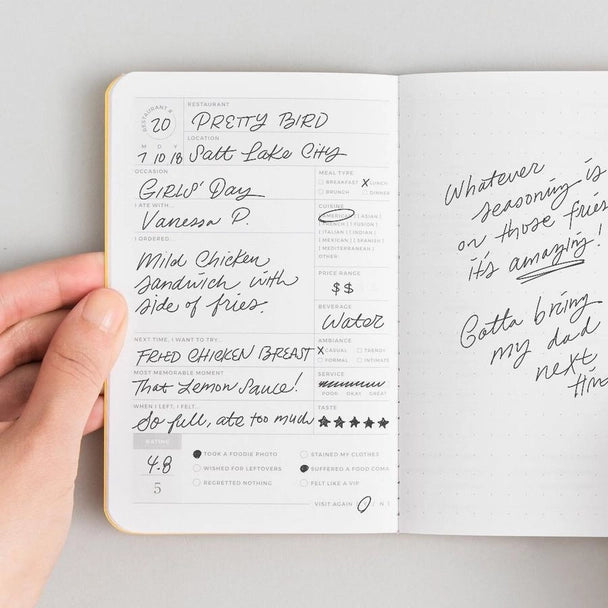 RESTAURANT #
20
RESTAURANT
PRETTY BIRD
LOCATION
M D Y
7 10 18 Salt Lake City
OCCASION
Girls' Day
MEAL TYPE
BREAKFAST X LUNCH
BRUNCH DINNER
I ATE WITH...
Vanessa P.
CUISINE
AMERICAN | ASIAN |
FRENCH | FUSION |
ITALIAN | INDIAN |
MEXICAN | SPANISH |
MEDITERRANEAN |
OTHER
I ORDERED...
Mild Chicken
Sandwich with
side of fries.
PRICE RANGE
$$
BEVERAGE
Water
NEXT TIME, I WANT TO TRY...
FRIED CHICKEN BREAST
AMBIANCE
X CASUAL TRENDY
FORMAL INTIMATE
MOST MEMORABLE MOMENT
That Lemon Sauce!
SERVICE
POOR OKAY GREAT
WHEN I LEFT, I FELT...
So full, ate too much
TASTE
★★★★★
RATING
4.8
5
TOOK A FOODIE PHOTO
WISHED FOR LEFTOVERS
REGRETTED NOTHING
STAINED MY CLOTHES
SUFFERED A FOOD COMA
FELT LIKE A VIP
VISIT AGAIN
Whatever
seasoning is
on those fries
it's amazing!
Gotta bring
my dad
next
time